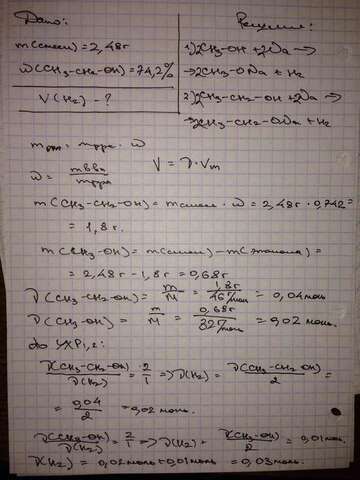 Дано:
m(смеси) = 2,48г
ω(CH₃-CH₂-OH) = 74,2%
V(H₂) - ?
Решение:
1) 2CH₃-OH + 2Na →
→ 2CH₃-ONa + H₂
2) 2CH₃-CH₂-OH + 2Na →
→ 2CH₃-CH₂-ONa + H₂
ω = mвва / mрра
V = ν · Vm
m(CH₃-CH₂-OH) = mсмеси · ω = 2,48г · 0,742 =
= 1,8г.
m(CH₃-OH) = m(смеси) - m(этанола) =
= 2,48г - 1,8г = 0,68г
ν(CH₃-CH₂-OH) = m/M = 1,8г / 46г/моль = 0,04моль
ν(CH₃-OH) = m/M = 0,68г / 32г/моль = 0,02 моль.
по УХР1,2:
ν(CH₃-CH₂-OH) / ν(H₂) = 2/1 => ν(H₂) = ν(CH₃-CH₂-OH) / 2 =
= 0,04 / 2 = 0,02 моль.
ν(CH₃-OH) / ν(H₂) = 2/1 => ν(H₂) = ν(CH₃-OH) / 2 = 0,01моль
ν(H₂) = 0,02моль + 0,01моль = 0,03моль.